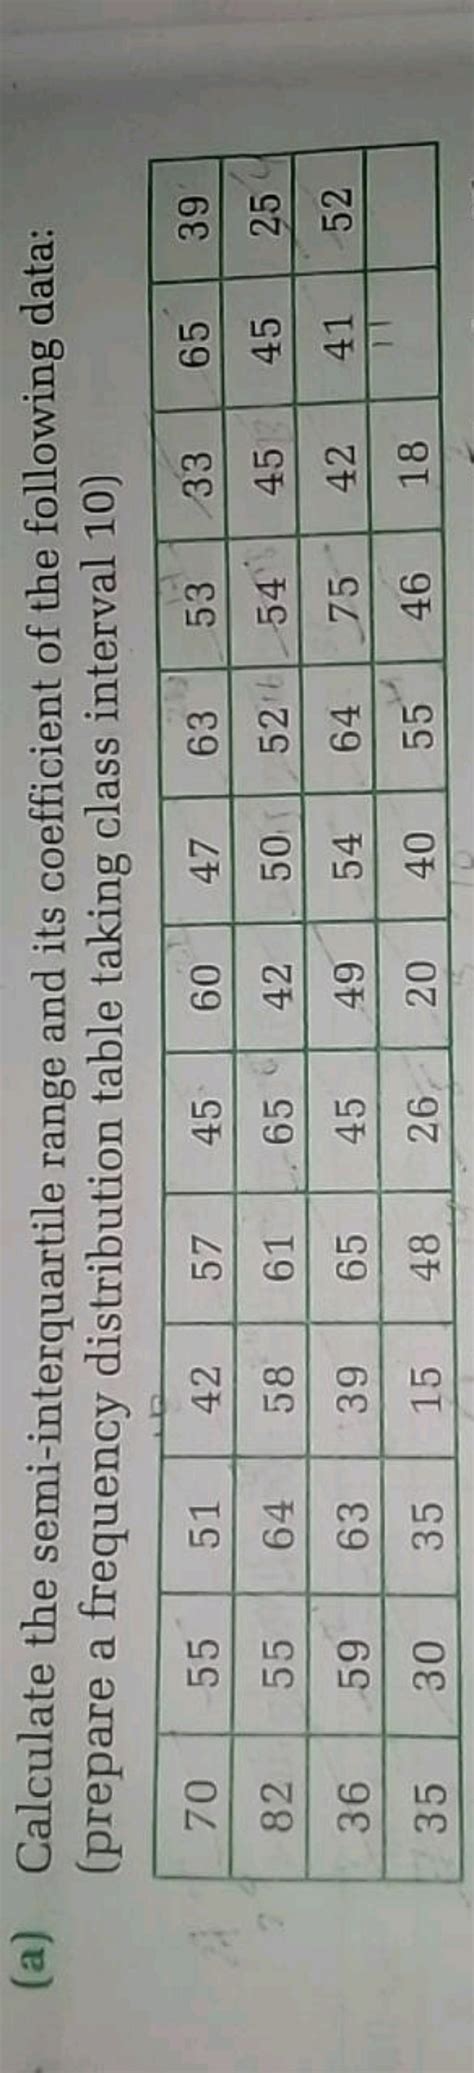 (a) Calculate the semi-interquartile range and its coefficient of the following data:
(prepare a frequency distribution table taking class interval 10)
70 55 51 42 57 45 60 47 63 53 33 65 39
82 55 64 58 61 65 42 50 52 54 45 45 25
36 59 63 39 65 45 49 54 64 75 42 41 52
35 30 35 15 48 26 20 40 55 46 18